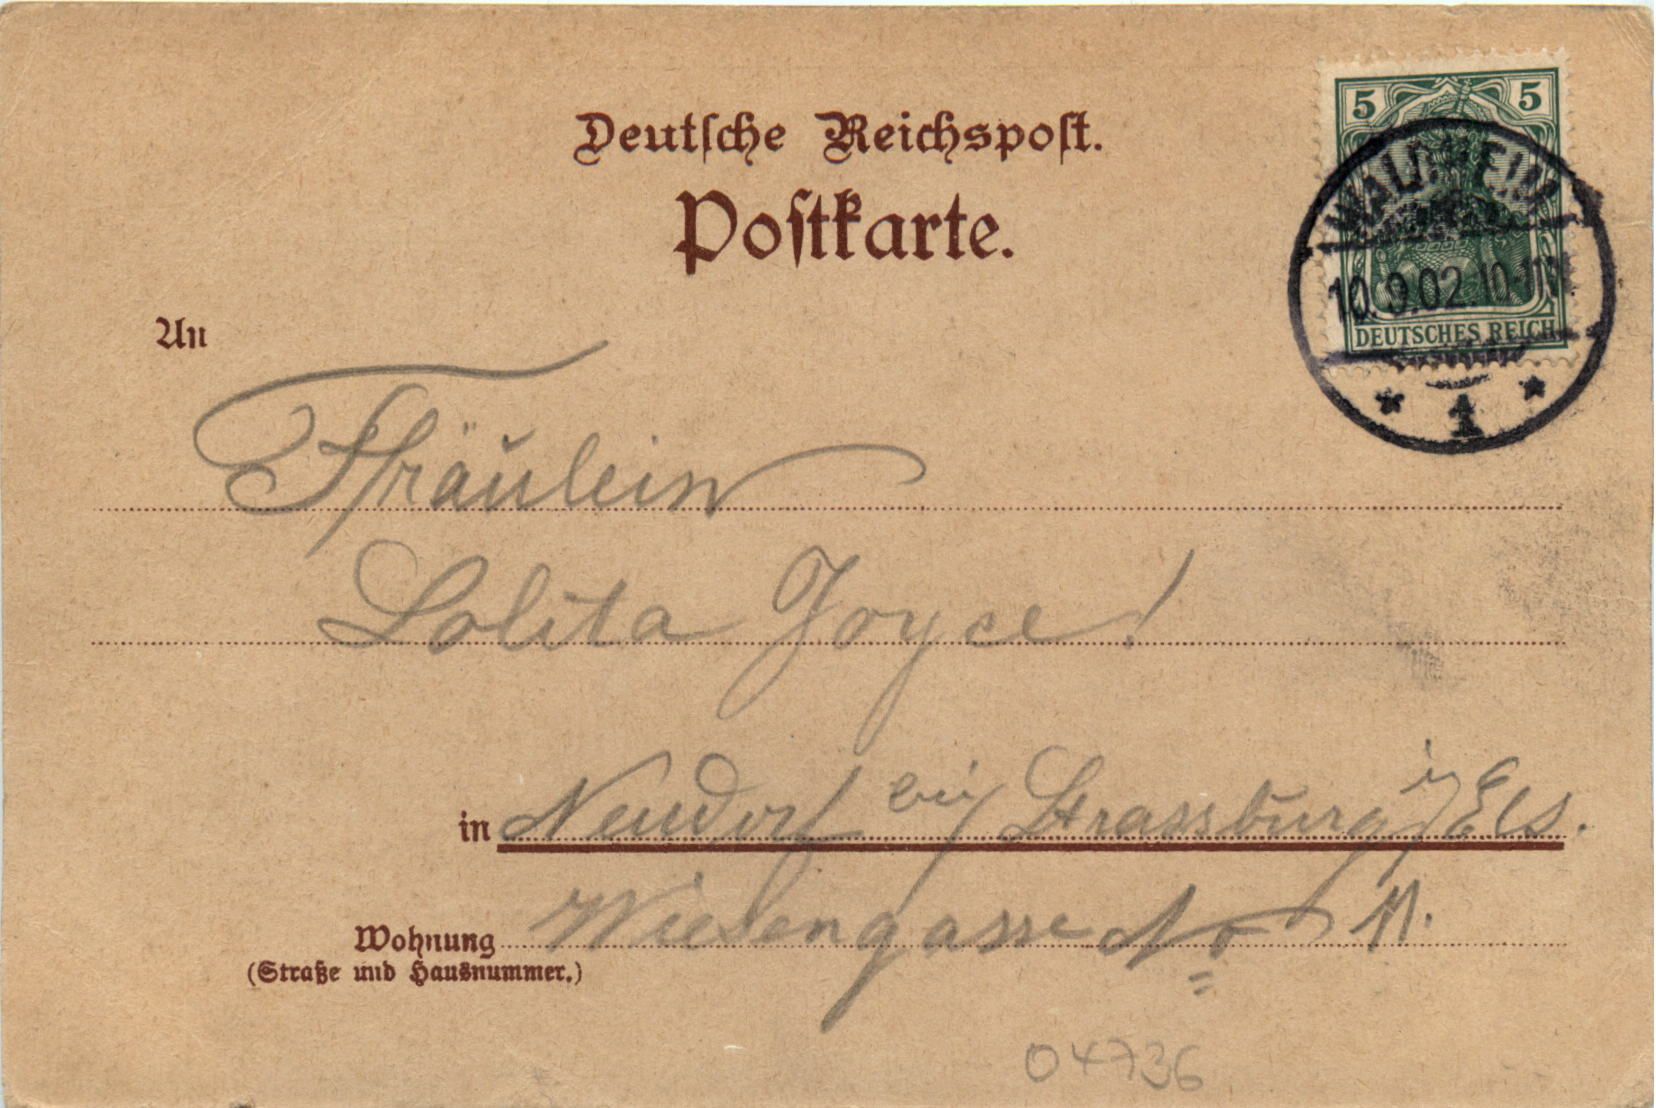 Deutsche Reichspost.
Postkarte.
5 5
DEUTSCHES REICH
WALDHEIM
10.9.02.10-11V.
* 1 *
An
Fräulein
Lolita Joyce!
in Neudorf bei Strassburg i/Els.
Wohnung Wiesengasse No 11.
(Straße und Hausnummer.)
04736